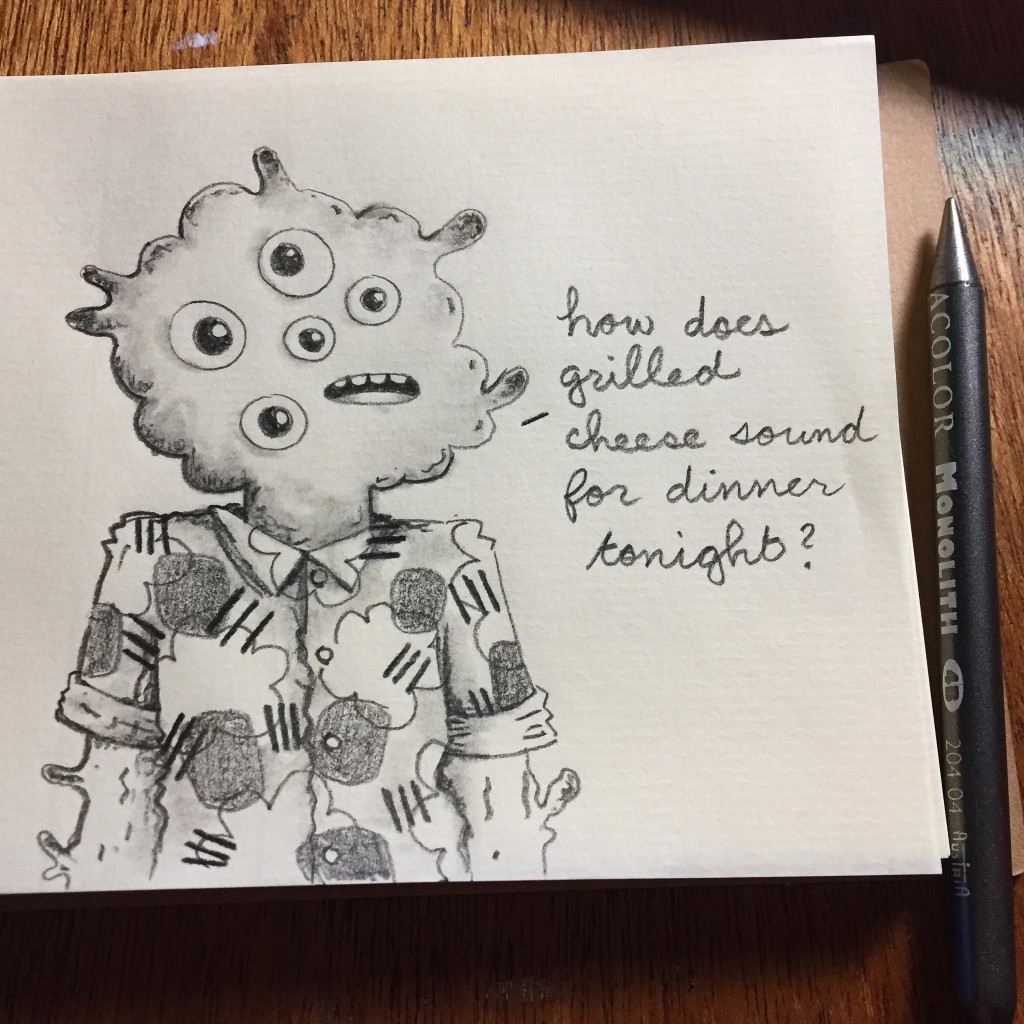 how does
grilled
cheese sound
for dinner
tonight?
ACOLOR MONOLITH 204 04 Austria